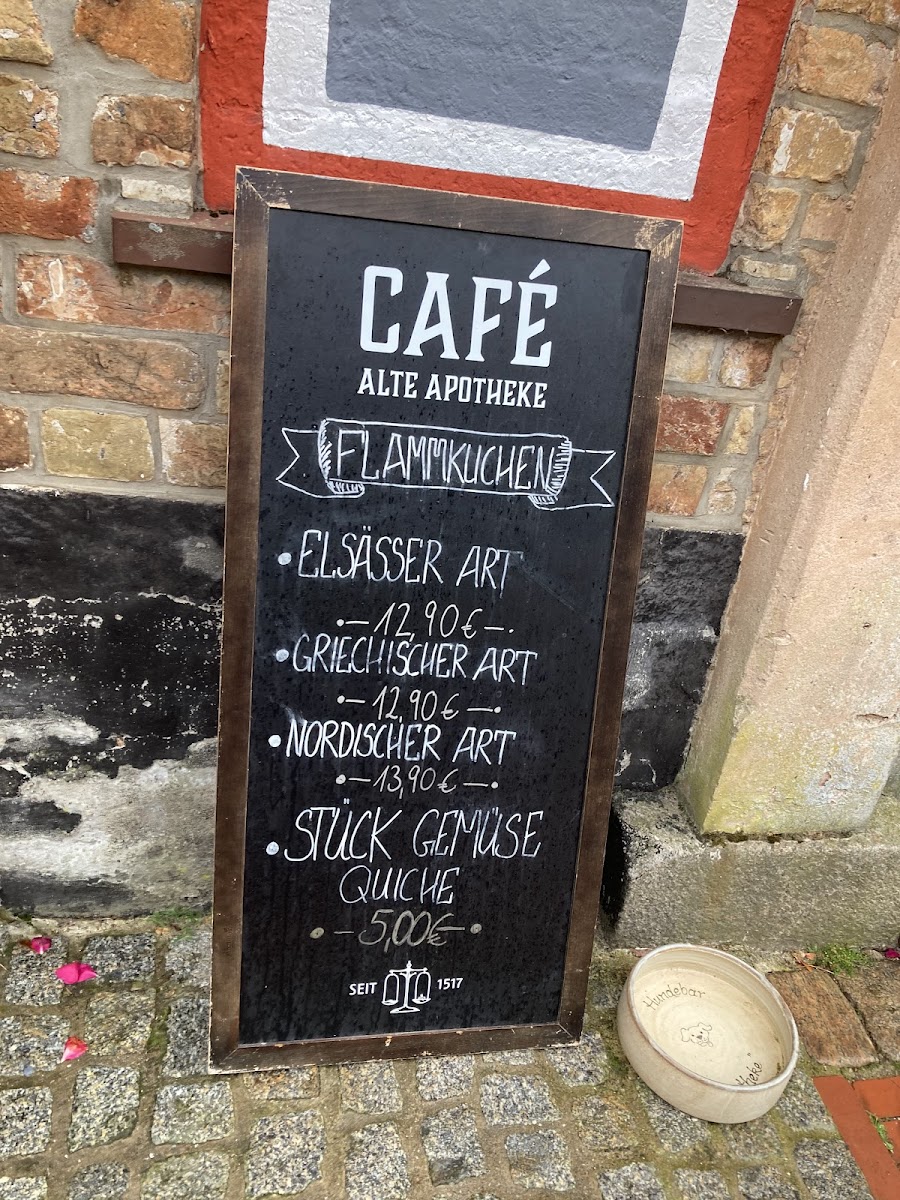 CAFÉ
ALTE APOTHEKE
FLAMMKUCHEN
• ELSÄSSER ART
•— 12,90 € —.
• GRIECHISCHER ART
•— 12,90 € —•
• NORDISCHER ART
•— 13,90 € —•
• STÜCK GEMÜSE
QUICHE
• — 5,00€ — •
SEIT 1517
Hundebar